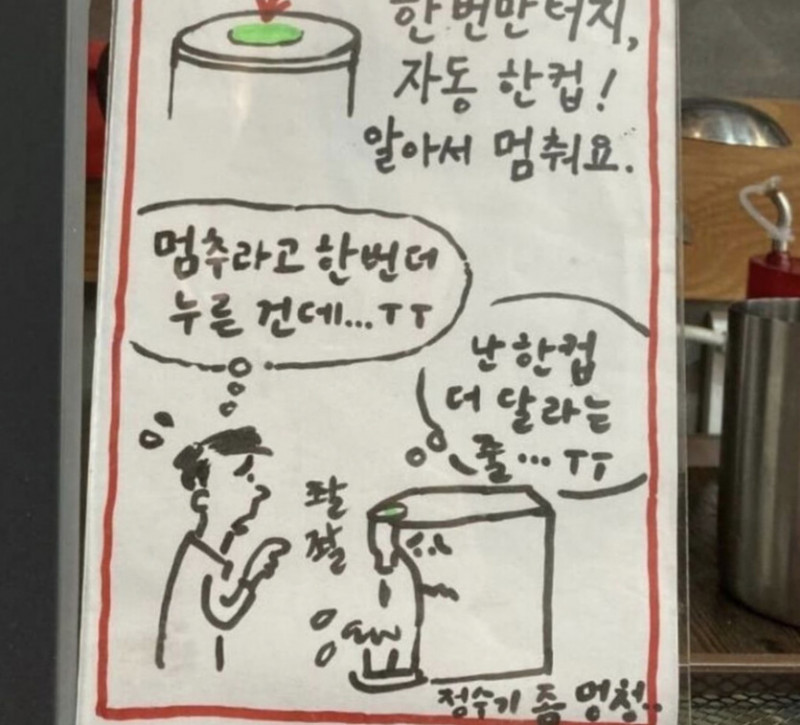 한번만 터치,
자동 한컵!
알아서 멈춰요.
멈추라고 한번더
누른 건데...ㅜㅜ
난 한컵
더 달라는
줄...ㅜㅜ
좔
좔
정수기 좀 멍청..